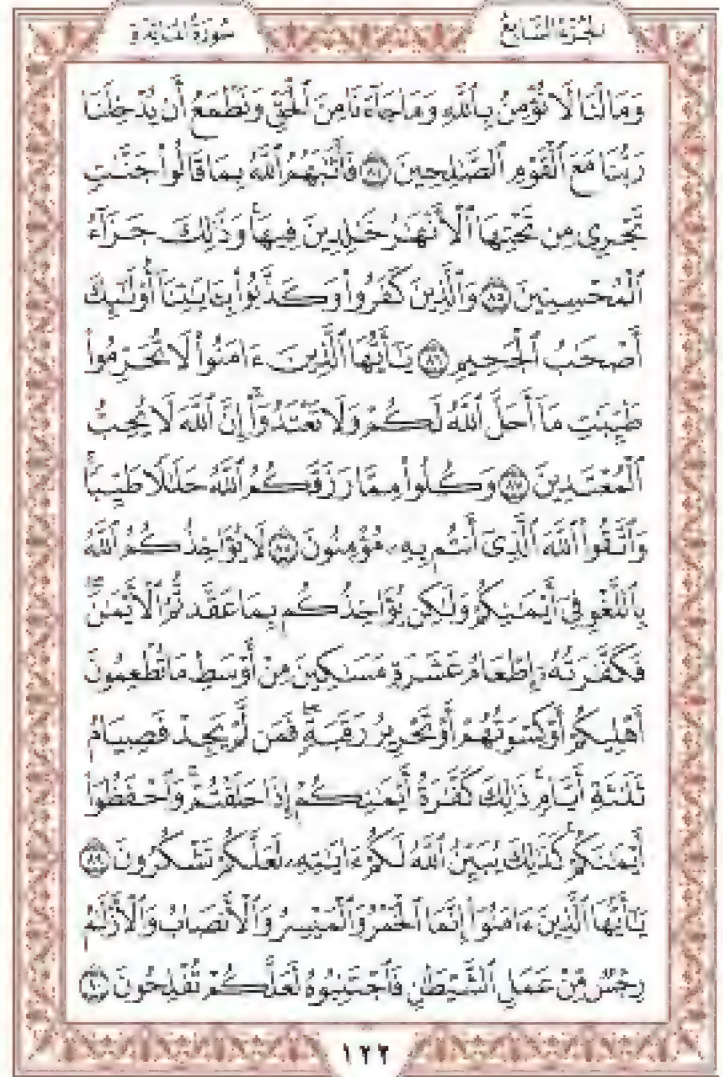 الجزء السابع
سورة المائدة
وَمَا لَنَا لَا نُؤْمِنُ بِٱللَّهِ وَمَا جَآءَنَا مِنَ ٱلْحَقِّ وَنَطْمَعُ أَن يُدْخِلَنَا
رَبُّنَا مَعَ ٱلْقَوْمِ ٱلصَّـٰلِحِينَ ٨٤ فَأَثَـٰبَهُمُ ٱللَّهُ بِمَا قَالُوا۟ جَنَّـٰتٍ
تَجْرِى مِن تَحْتِهَا ٱلْأَنْهَـٰرُ خَـٰلِدِينَ فِيهَا ۚ وَذَٰلِكَ جَزَآءُ
ٱلْمُحْسِنِينَ ٨٥ وَٱلَّذِينَ كَفَرُوا۟ وَكَذَّبُوا۟ بِـَٔايَـٰتِنَآ أُو۟لَـٰٓئِكَ
أَصْحَـٰبُ ٱلْجَحِيمِ ٨٦ يَـٰٓأَيُّهَا ٱلَّذِينَ ءَامَنُوا۟ لَا تُحَرِّمُوا۟
طَيِّبَـٰتِ مَآ أَحَلَّ ٱللَّهُ لَكُمْ وَلَا تَعْتَدُوٓا۟ ۚ إِنَّ ٱللَّهَ لَا يُحِبُّ
ٱلْمُعْتَدِينَ ٨٧ وَكُلُوا۟ مِمَّا رَزَقَكُمُ ٱللَّهُ حَلَـٰلًا طَيِّبًا ۚ
وَٱتَّقُوا۟ ٱللَّهَ ٱلَّذِىٓ أَنتُم بِهِۦ مُؤْمِنُونَ ٨٨ لَا يُؤَاخِذُكُمُ ٱللَّهُ
بِٱللَّغْوِ فِىٓ أَيْمَـٰنِكُمْ وَلَـٰكِن يُؤَاخِذُكُم بِمَا عَقَّدتُّمُ ٱلْأَيْمَـٰنَ ۖ
فَكَفَّـٰرَتُهُۥٓ إِطْعَامُ عَشَرَةِ مَسَـٰكِينَ مِنْ أَوْسَطِ مَا تُطْعِمُونَ
أَهْلِيكُمْ أَوْ كِسْوَتُهُمْ أَوْ تَحْرِيرُ رَقَبَةٍ ۖ فَمَن لَّمْ يَجِدْ فَصِيَامُ
ثَلَـٰثَةِ أَيَّامٍ ۚ ذَٰلِكَ كَفَّـٰرَةُ أَيْمَـٰنِكُمْ إِذَا حَلَفْتُمْ ۚ وَٱحْفَظُوٓا۟
أَيْمَـٰنَكُمْ ۚ كَذَٰلِكَ يُبَيِّنُ ٱللَّهُ لَكُمْ ءَايَـٰتِهِۦ لَعَلَّكُمْ تَشْكُرُونَ ٨٩
يَـٰٓأَيُّهَا ٱلَّذِينَ ءَامَنُوٓا۟ إِنَّمَا ٱلْخَمْرُ وَٱلْمَيْسِرُ وَٱلْأَنصَابُ وَٱلْأَزْلَـٰمُ
رِجْسٌ مِّنْ عَمَلِ ٱلشَّيْطَـٰنِ فَٱجْتَنِبُوهُ لَعَلَّكُمْ تُفْلِحُونَ ٩٠
١٢٢